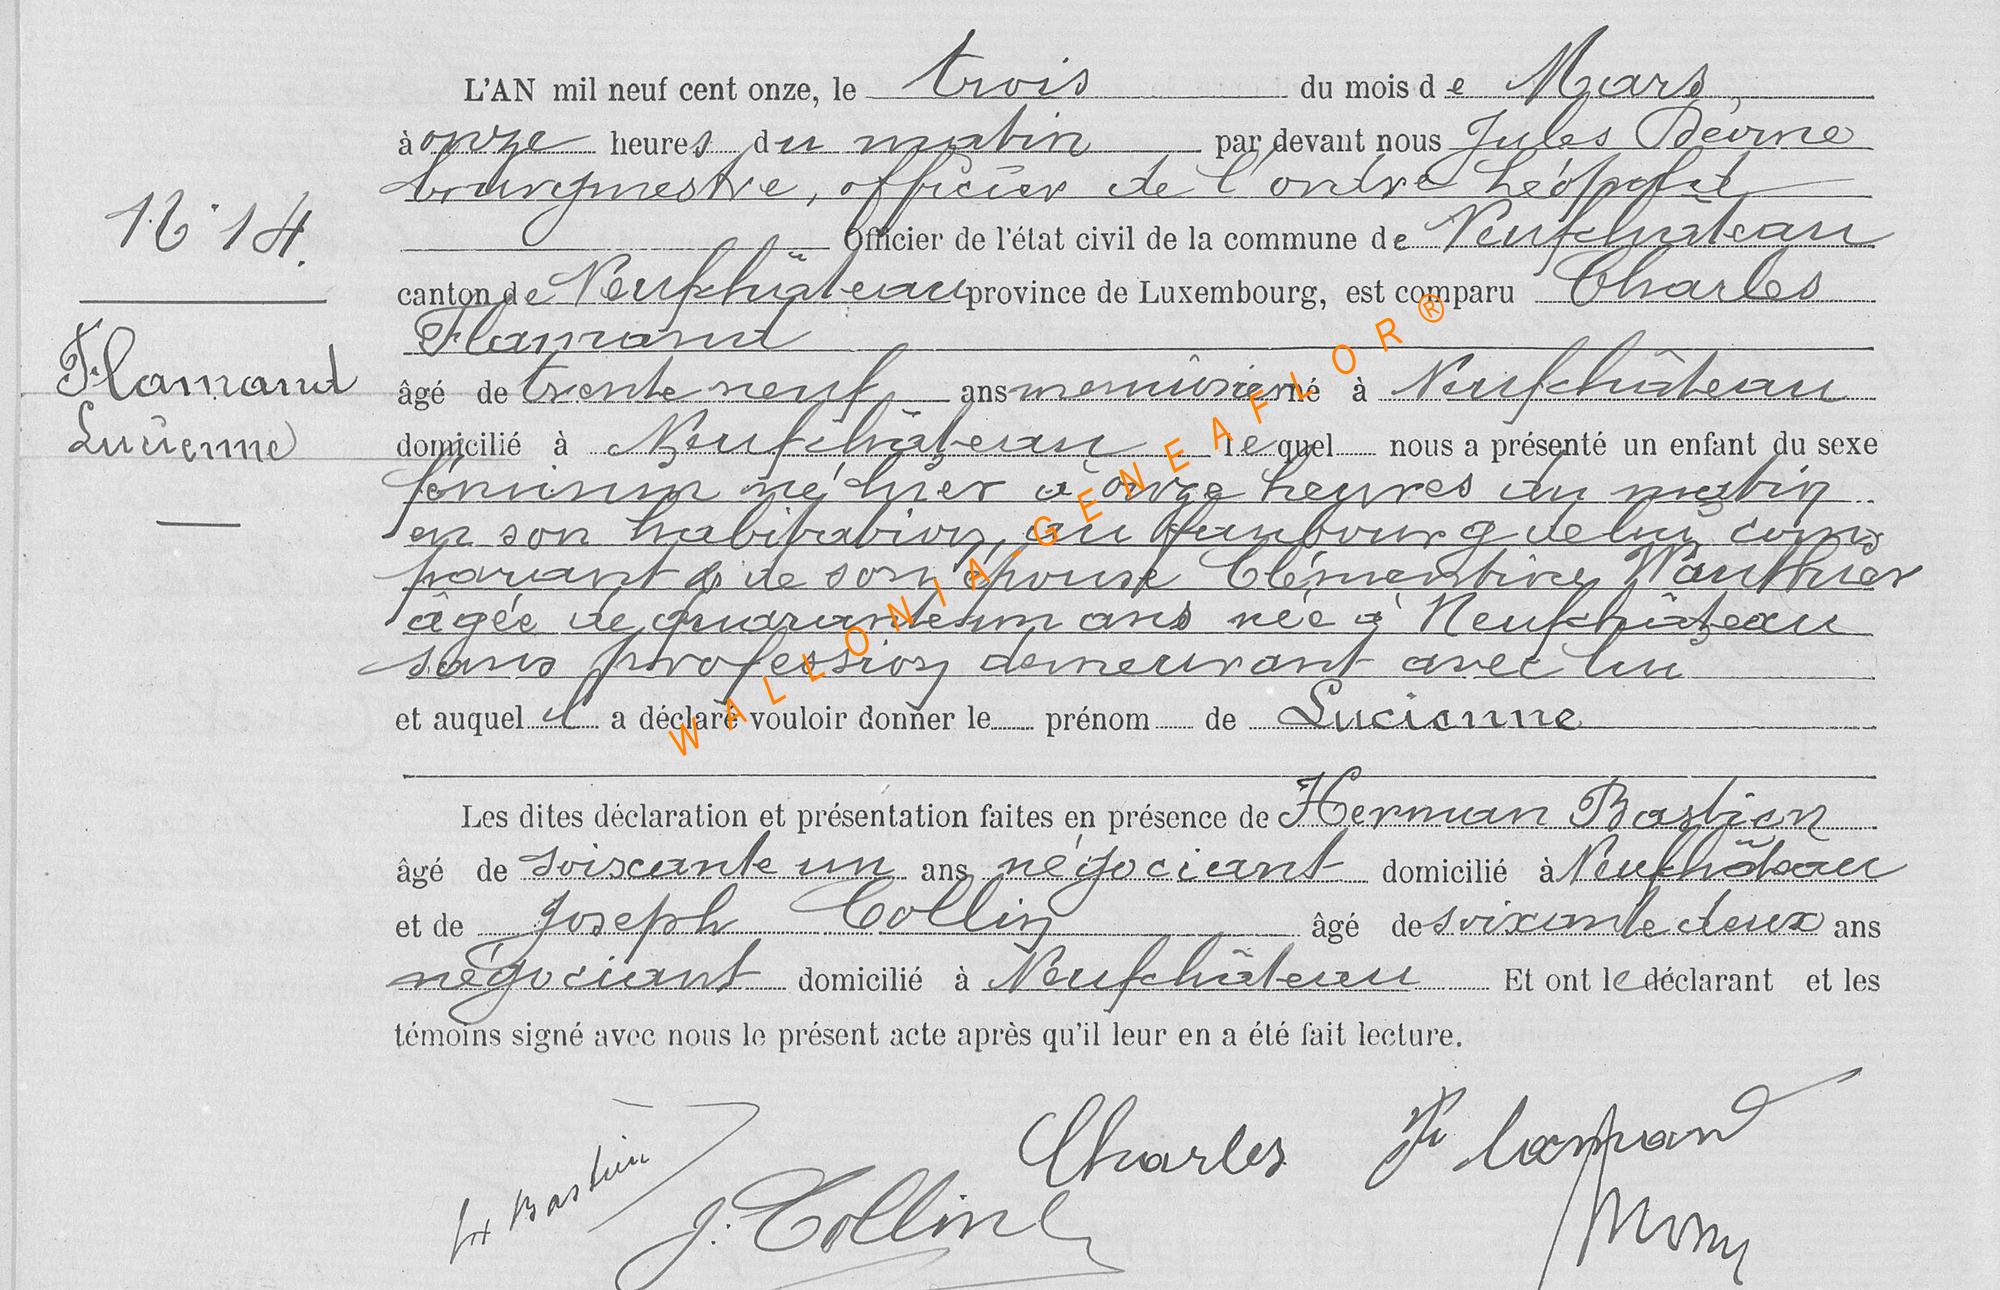 L'AN mil neuf cent onze, le trois du mois de Mars,
à onze heures du matin par devant nous Jules
bourgmestre, officier de l'ordre Léopold
Officier de l'état civil de la commune de Neufchâteau
N° 14.
canton de Neufchâteau province de Luxembourg, est comparu Charles
Flamand
Flamand
Lucienne
âgé de trente neuf ans menuisier né à Neufchâteau
domicilié à Neufchâteau lequel nous a présenté un enfant du sexe
féminin né hier à onze heures du matin
en son habitation, au faubourg de lui com
parant & de son épouse Clémentine Wauthier
âgée de quarante un ans née à Neufchâteau
sans profession demeurant avec lui
et auquel il a déclaré vouloir donner le prénom de Lucienne
Les dites déclaration et présentation faites en présence de Herman Bastien
âgé de soixante un ans négociant domicilié à Neufchâteau
et de Joseph Collin âgé de soixante deux ans
négociant domicilié à Neufchâteau Et ont le déclarant et les
témoins signé avec nous le présent acte après qu'il leur en a été fait lecture.
Charles Flamand
H Bastien
J. Collin
WALLONIA-GENEAFLOR®